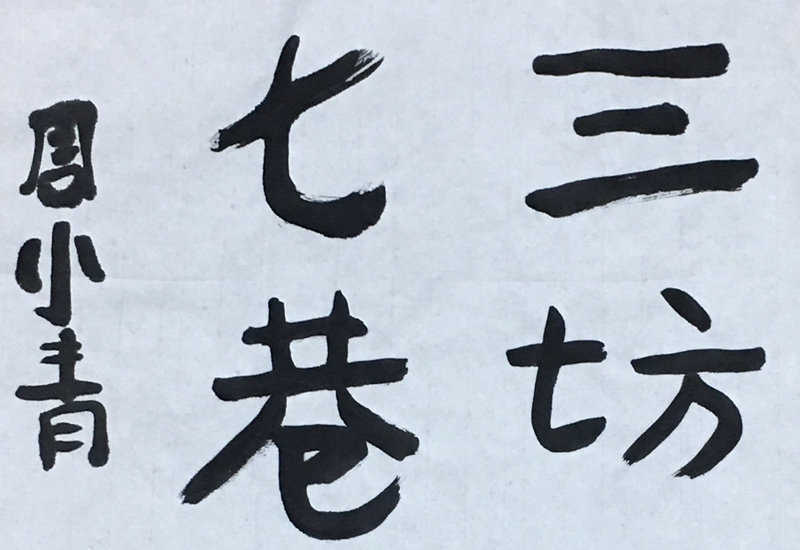 三坊
七巷
周小青